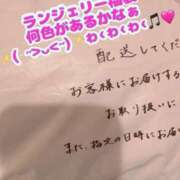 ランジェリー福袋
何色があるかなぁ
✨( ˶ｰ̀֊ｰ́˶)✨わくわくわく🎵🩷
配送してくだ
お客様にお届けする
お取り扱いに
また、指定の日時にお届